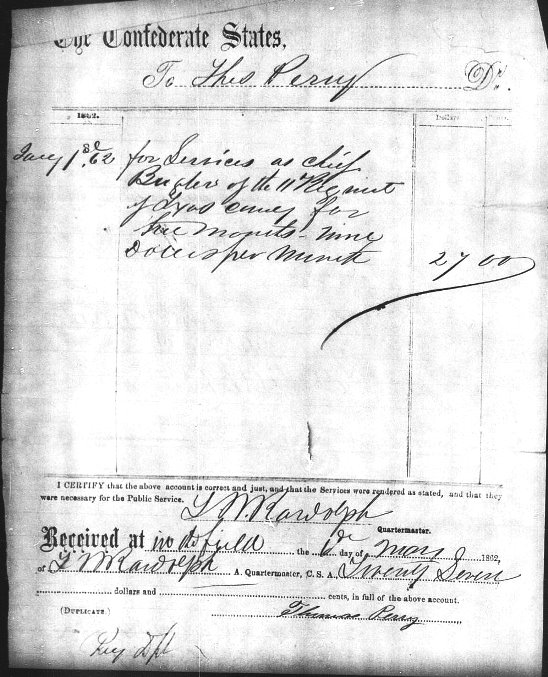 The Confederate States,
To Thos Perry Dr.
1862. Dollars
Jany 1st 62 for Services as chief
Bugler of the 11th Regiment
of Texas cavalry for
three Months - Nine
Dollars per Month 27 00
I CERTIFY that the above account is correct and just, and that the Services were rendered as stated, and that they
were necessary for the Public Service.
Quartermaster.
Received at in the field the day of May 1862,
of Randolph A. Quartermaster, C. S. A., Twenty Seven
dollars and cents, in full of the above account.
(DUPLICATE.) Thomas Perry